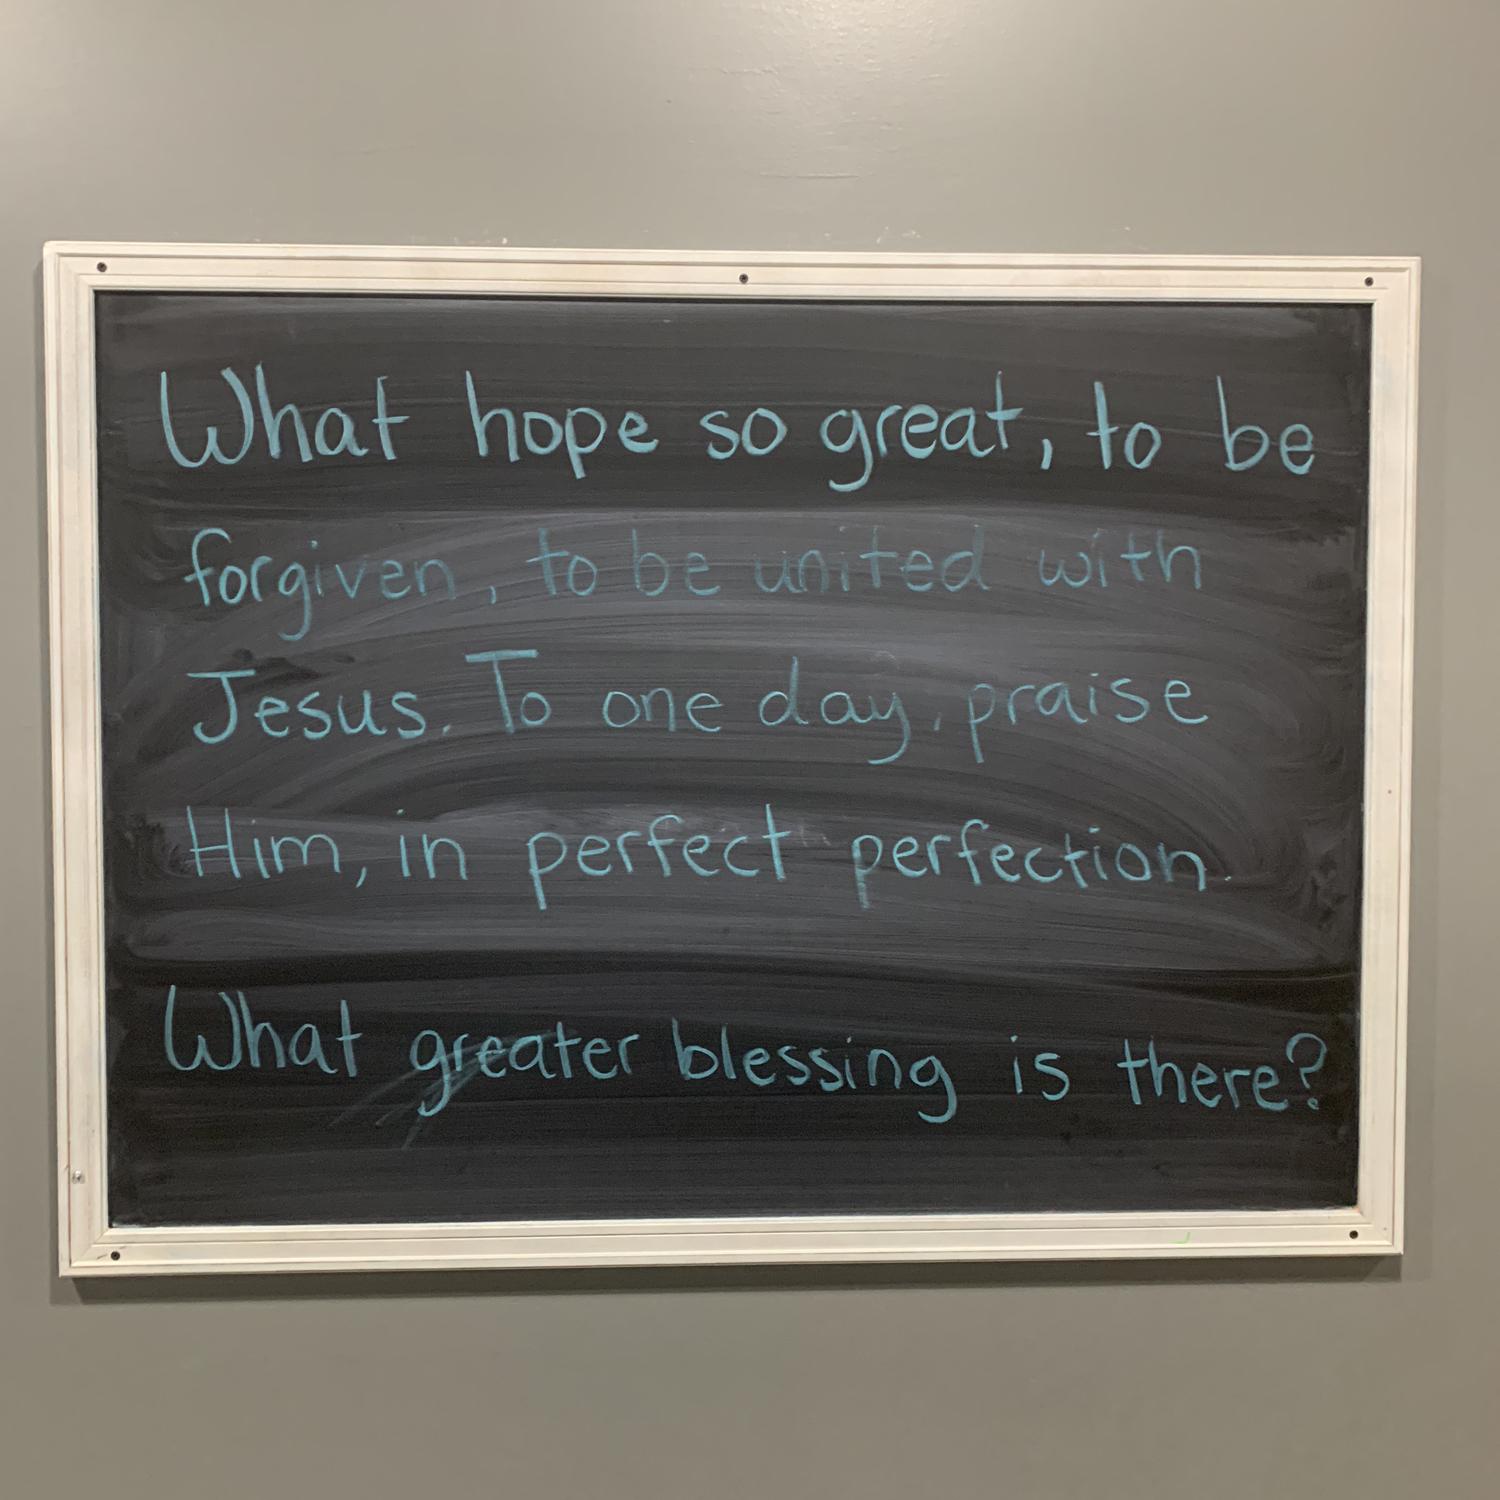 What hope so great, to be
forgiven, to be united with
Jesus. To one day, praise
Him, in perfect perfection.
What greater blessing is there?